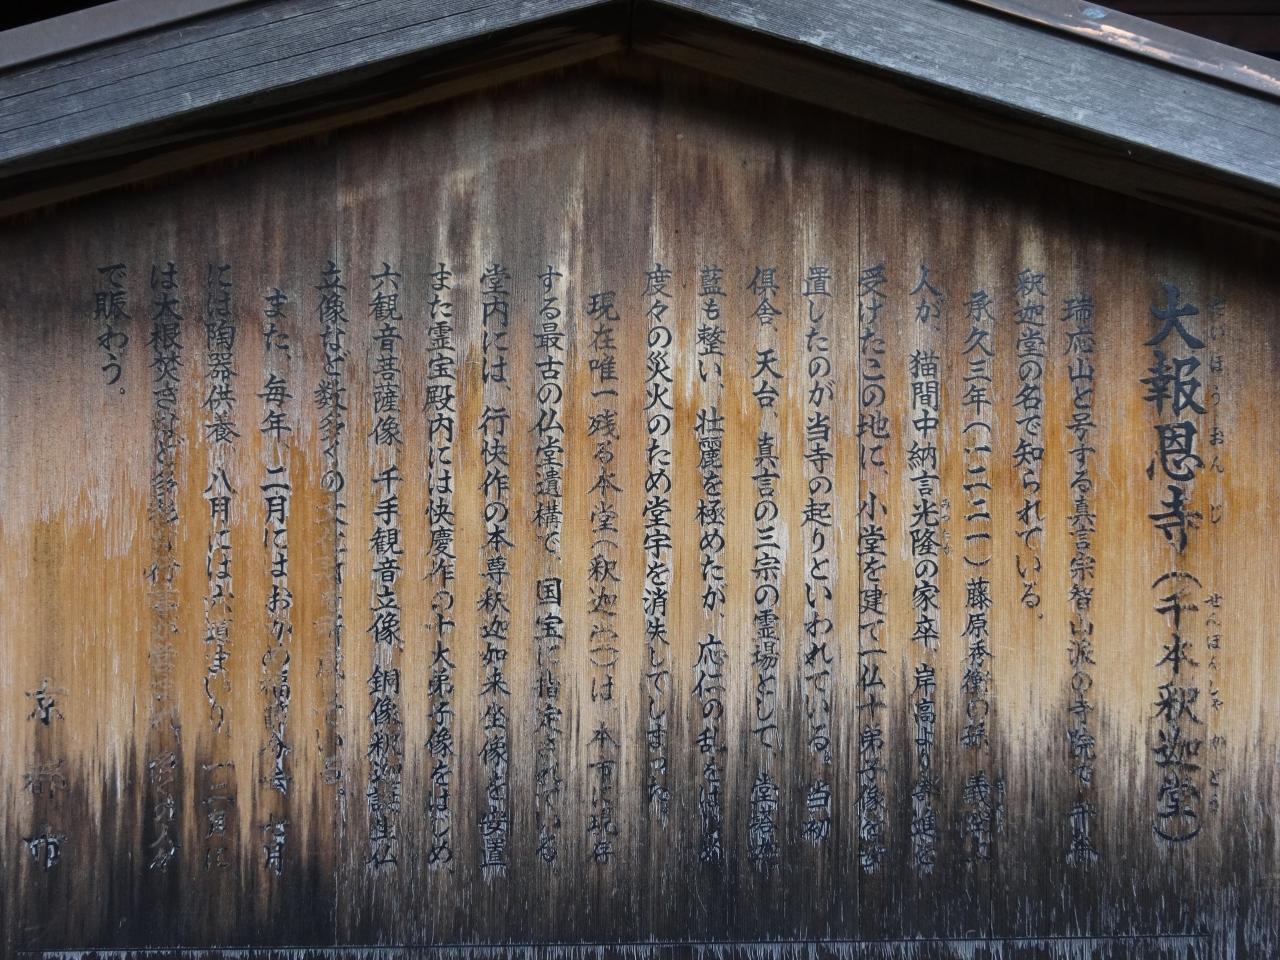 大報恩寺（千本釈迦堂）
だいほうおんじ せんぼんしゃかどう
瑞応山と号する真言宗智山派の寺院で、千本
釈迦堂の名で知られている。
承久三年（一二二一）藤原秀衡の孫、義空上
人が、猫間中納言光隆の家卒、岸高より寄進を
みつたか
受けたこの地に、小堂を建て一仏十弟子像を安
置したのが当寺の起りといわれている。当初
倶舎、天台、真言の三宗の霊場として、堂塔伽
藍も整い、壮麗を極めたが、応仁の乱をはじめ
度々の災火のため堂宇を消失してしまった。
現在唯一残る本堂（釈迦堂）は、本市に現存
する最古の仏堂遺構で、国宝に指定されている
堂内には、行快作の本尊釈迦如来坐像を安置
また霊宝殿内には快慶作の十大弟子像をはじめ
六観音菩薩像、千手観音立像、銅像釈迦誕生仏
立像など数多くの
いる。
また、毎年、二月にはおかめ福節分、七月
には陶器供養、八月には六道まいり、十二月に
は大根焚きなど多彩な行事が営まれ、多くの人々
で賑わう。
京都市